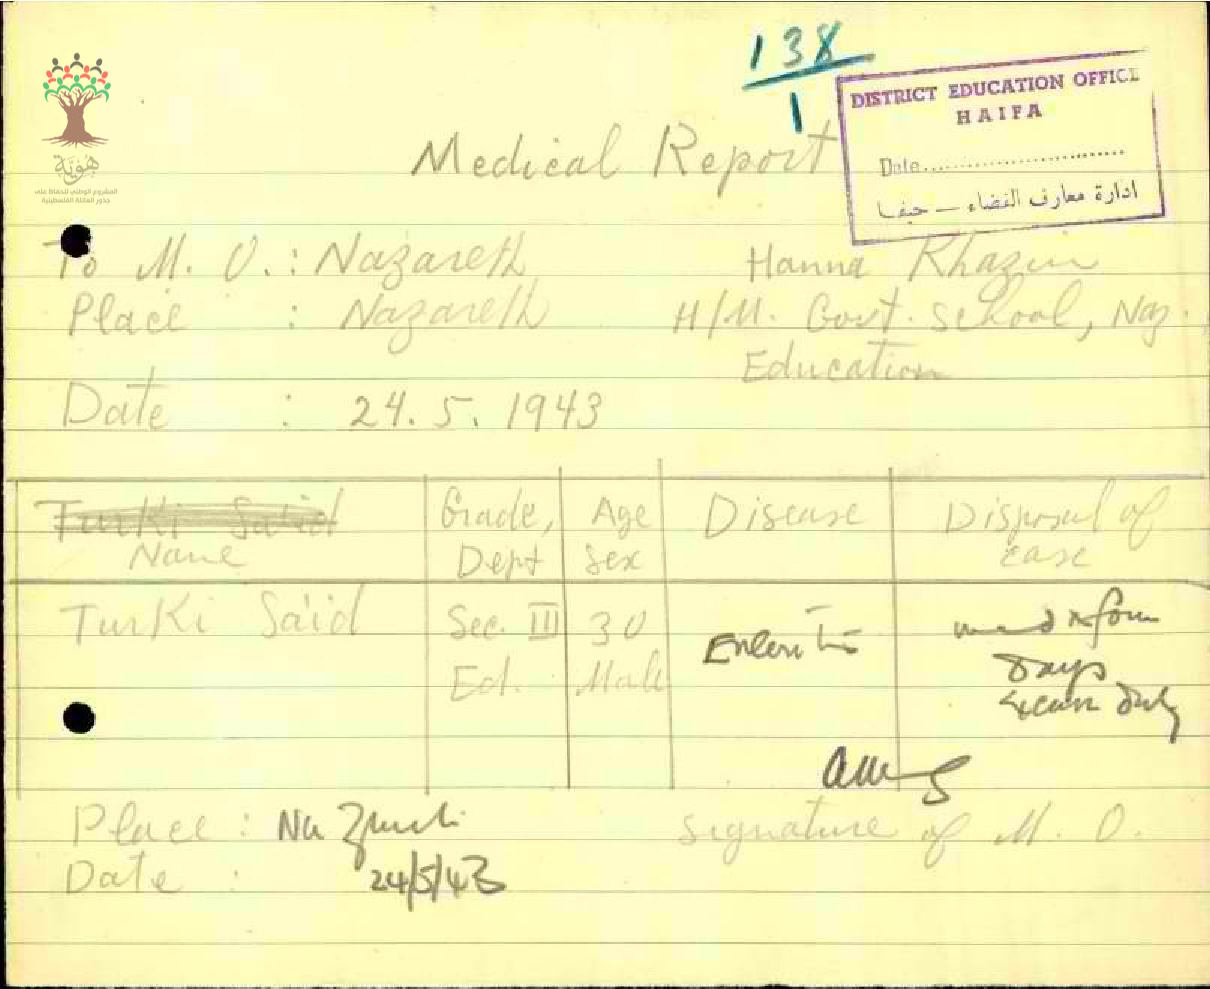 138
1
DISTRICT EDUCATION OFFICE
HAIFA
Date
ادارة معارف القضاء — حيفا
هوية
المشروع الوطني للحفاظ على
جذور العائلة الفلسطينية
Medical Report
To M. O. : Nazareth
Hanna Khazin
Place : Nazareth
H/M. Govt. School, Naz.
Education
Date : 24. 5. 1943
Turki Sa'id
Name
Grade, Dept
Age Sex
Disease
Disposal of case
Turki Sa'id
Sec. III Ed.
30 Male
Enteritis
days
duty
Place :
signature of M. O.
Date : 24/5/43